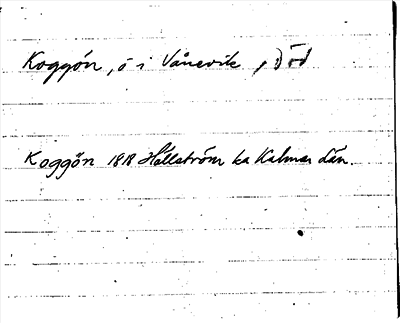 Koggön, ö i Vånevik,
Koggön 1818 Hällström ka Kalmar län.